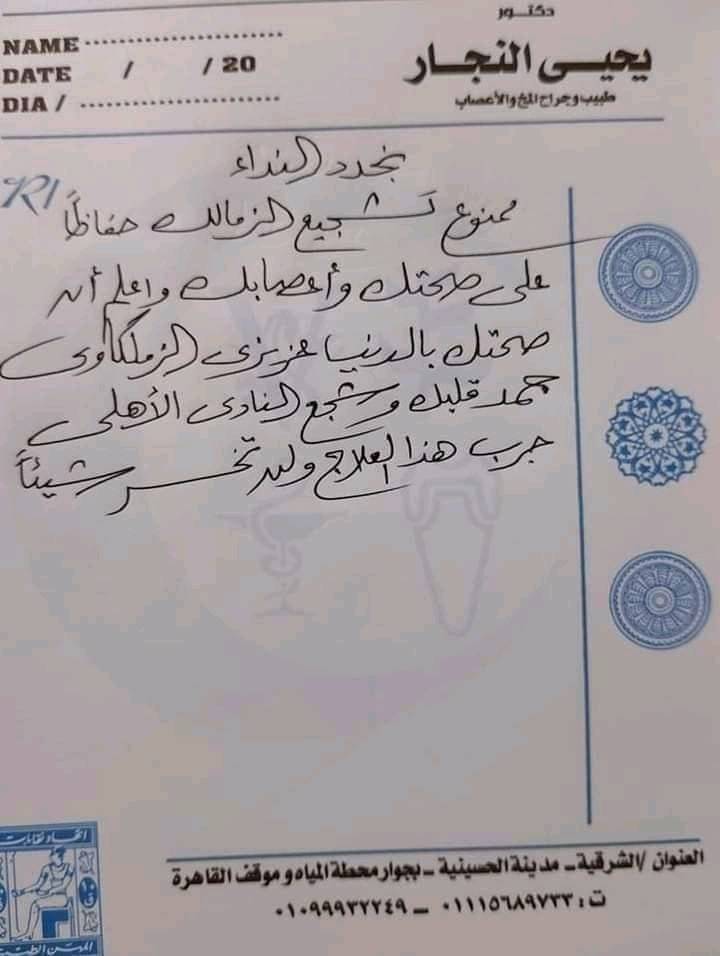 دكتور
يحيى النجار
طبيب وجراح المخ والأعصاب
NAME
DATE / / 20
DIA /
R/
نجدد النداء
ممنوع تشجيع الزمالك حفاظاً
على صحتك وأعصابك واعلم أن
صحتك بالدنيا عزيزى الزملكاوى
جمد قلبك وشجع النادى الأهلى
جرب هذا العلاج ولن تخسر شيئاً
اتحاد نقابات
المهن الطبية
العنوان / الشرقية - مدينة الحسينية - بجوار محطة المياه و موقف القاهرة
ت : ٠١١١٥٦٨٩٧٣٣ - ٠١٠٩٩٩٣٢٢٤٩